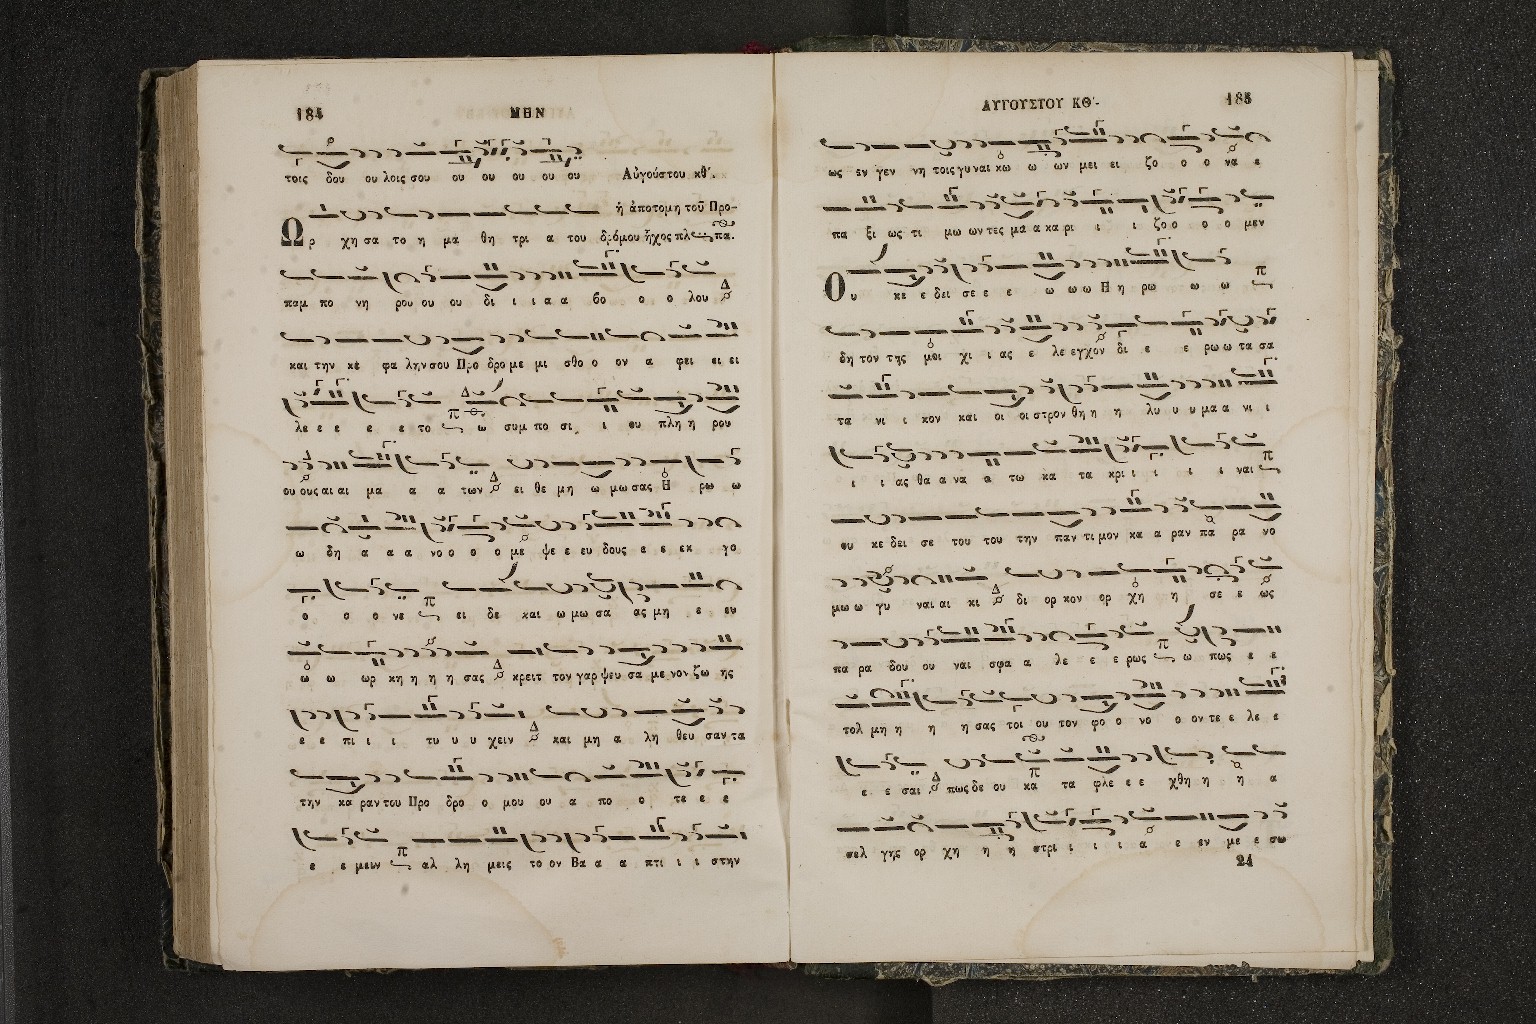 184
ΜΗΝ
τοις δου ου λοις σου ου ου ου ου ου Αὐγούστου κθ΄.
ἡ ἀποτομη τοῦ Προ-
Ωρ χη σα το η μα θη τρι α του δρόμου ἦχος πλ πα.
παμ πο νη ρου ου ου δι ι ι α α βο ο ο λου
και την κε φα λην σου Προ δρο με μι σθο ο ον α φει ει ει
λε ε ε ε ε το ω συμ πο σι ι ου πλη η ρου
ου ους αι αι μα α α των ει θε μη ω μω σας Η ρω ω
ω δη α α α νο ο ο ο με ψε ε ευ δους ε ε εκ γο
ο ο ο νε ει δε και ω μω σα ας μη ε εν
ω ω ωρ κη η η η σας κρειτ τον γαρ ψευ σα με νον ζω ης
ε ε πι ι ι τυ υ υ χειν και μη α λη θευ σαν τα
την κα ραν του Προ δρο ο μου ου α πο ο τε ε ε
ε ε μειν αλ λη μεις το ον Βα α α πτι ι ι στην
ΑΥΓΟΥΣΤΟΥ ΚΘ΄-
185
ως εν γεν νη τοις γυ ναι κω ω ων μει ει ζο ο ο να ε
πα ξι ως τι μω ων τες μα α κα ρι ι ι ζο ο ο ο μεν
Ου κε ε δει σε ε ε ω ω ω Η η ρω ω ω
δη τον της μοι χι ι ας ε λε εγχον δι ε ε ρω ω τα σα
τα νι ι κον και οι οι στρον θη η η λυ υ υ μα α νι ι
ι ι ας θα α να α τω κα τα κρι ι ι ι ι ναι
ου κε δει σε του του την παν τι μον κα α ραν πα ρα νο
μω ω γυ ναι αι κι δι ορ κον ορ χη η σε ε ως
πα ρα δου ου ναι σφα α λε ε ε ρως ω πως ε ε
τολ μη η η η σας τοι ου τον φο ο νο ο ον τε ε λε ε
ε ε σαι πως δε ου κα τα φλε ε ε χθη η η α
σελ γης ορ χη η η στρι ι ι ι α ε εν με ε σω
24